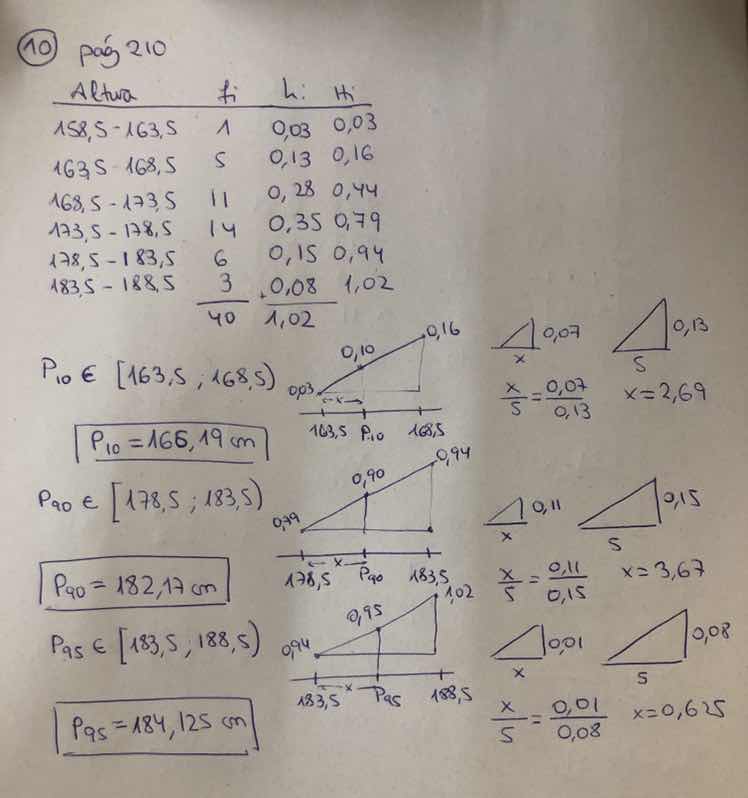 10 pág 210
Altura fi hi Hi
158,5-163,5 1 0,03 0,03
163,5-168,5 5 0,13 0,16
168,5-173,5 11 0,28 0,44
173,5-178,5 14 0,35 0,79
178,5-183,5 6 0,15 0,94
183,5-188,5 3 0,08 1,02
40 1,02
P10 ∈ [163,5 ; 168,5)
0,03 0,10 0,16
x
163,5 P10 168,5
0,07 x
0,13 5
x/5 = 0,07/0,13 x=2,69
P10 = 166,19 cm
P90 ∈ [178,5 ; 183,5)
0,79 0,90 0,94
x
178,5 P90 183,5
0,11 x
0,15 5
x/5 = 0,11/0,15 x=3,67
P90 = 182,17 cm
P95 ∈ [183,5 ; 188,5)
0,94 0,95 1,02
x
183,5 P95 188,5
0,01 x
0,08 5
x/5 = 0,01/0,08 x=0,625
P95 = 184,125 cm